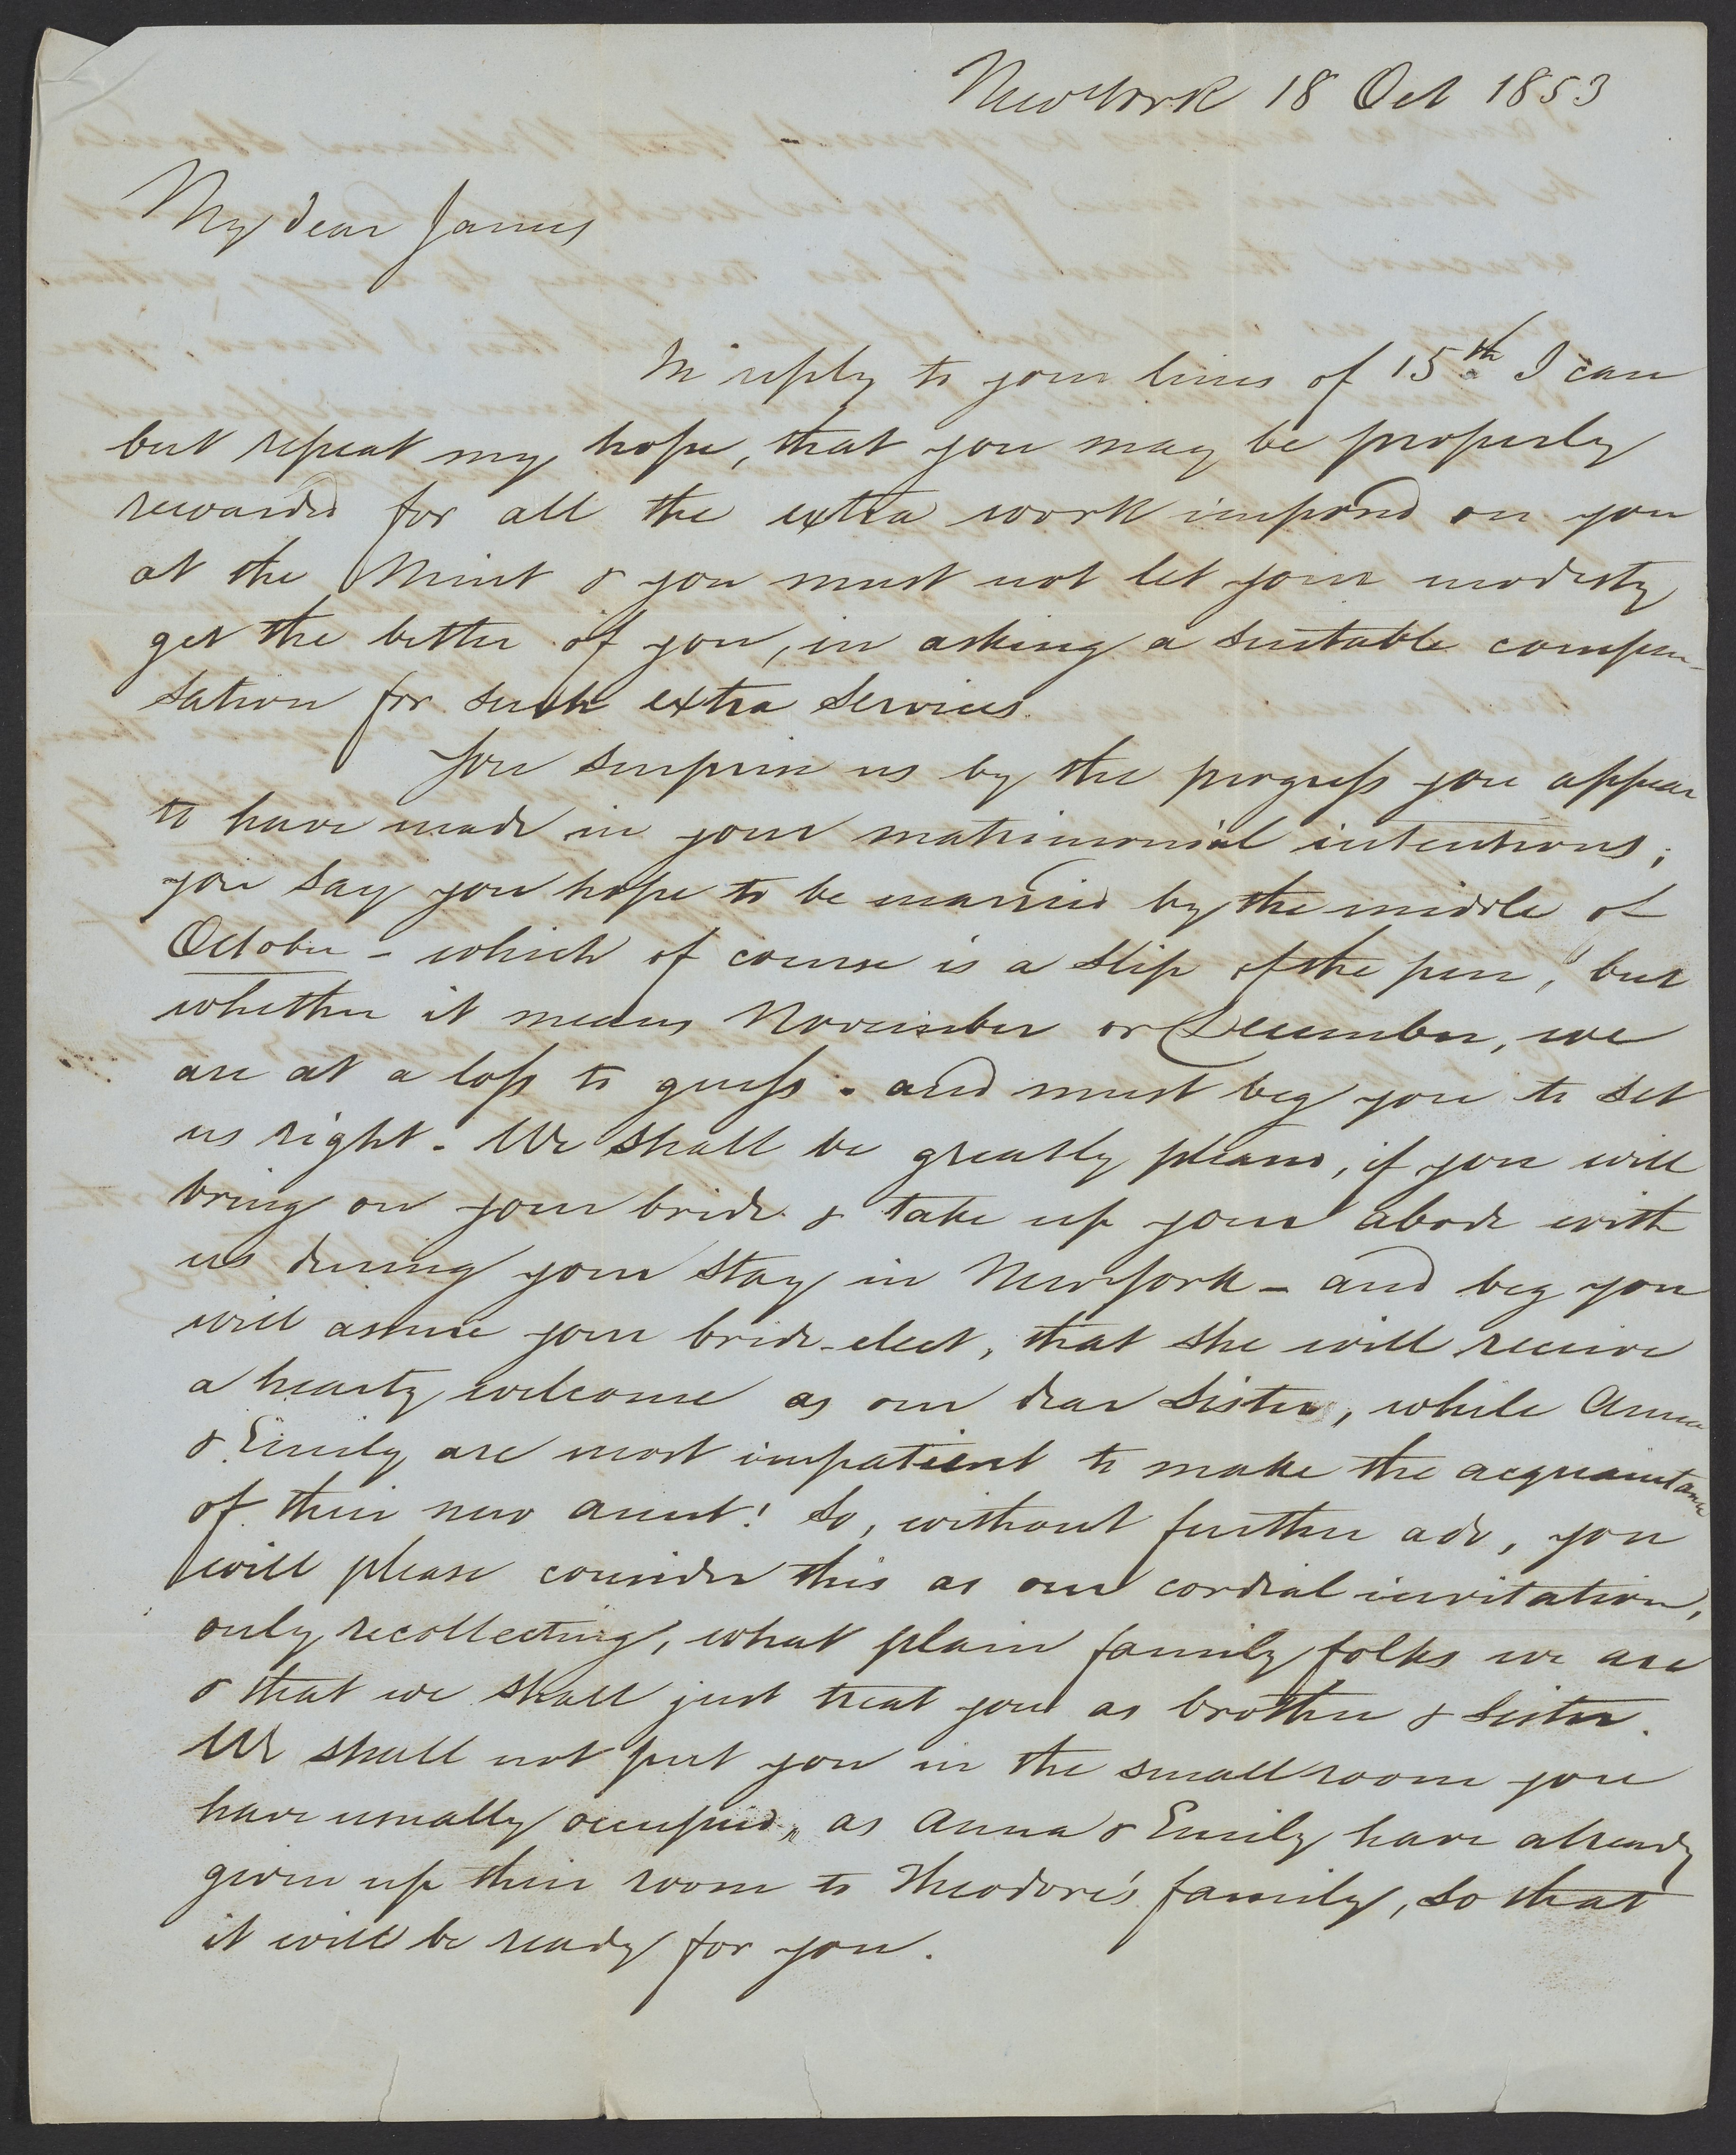 New York 18 Oct 1853
My dear James
In reply to your lines of 15th I can
but repeat my hope, that you may be properly
rewarded for all the extra work imposed on you
at the Mint & you must not let your modesty
get the better of you, in asking a suitable compen-
sation for such extra services.
You surprise us by the progress you appear
to have made in your matrimonial intentions;
you say you hope to be married by the middle of
October - which of course is a slip of the pen, but
whether it means November or December, we
are at a loss to guess - and must beg you to set
us right. We shall be greatly pleased, if you will
bring on your bride & take up your abode with
us during your stay in New York - and beg you
will assure your bride-elect, that she will receive
a hearty welcome as our dear sister, while Anna
& Emily are most impatient to make the acquaintance
of their new aunt! So, without further ado, you
will please consider this as our cordial invitation,
only recollecting, what plain family folks we are
& that we shall just treat you as brother & sister.
We shall not put you in the small room you
have usually occupied, as Anna & Emily have already
given up their room to Theodore's family, so that
it will be ready for you.